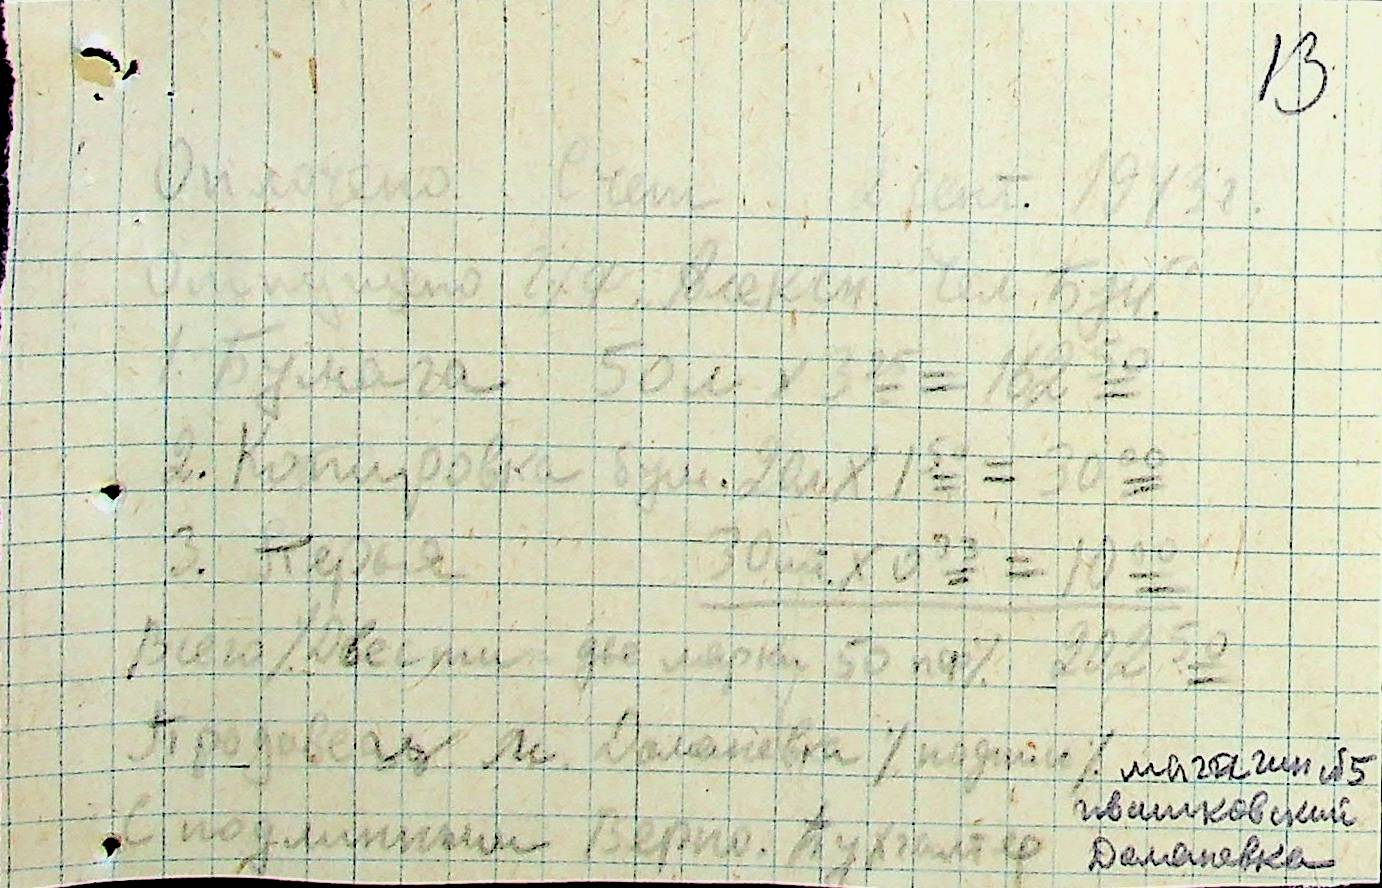 13
Оплочено Счет сент. 1943г.
Отпущено
1. Бумага 50 л х 3 25 = 162 50
2. Копировка бум. 20л х 1 50 = 30 00
3. Перья 30шт. х 0 33 = 10 00
Всего /Двести две марки 50 пф/. 202 50
Продавец м. Домановка /подпись/.
С подлинным Верно. Бухгалтер
магазин №5
ивашковский
Домановка